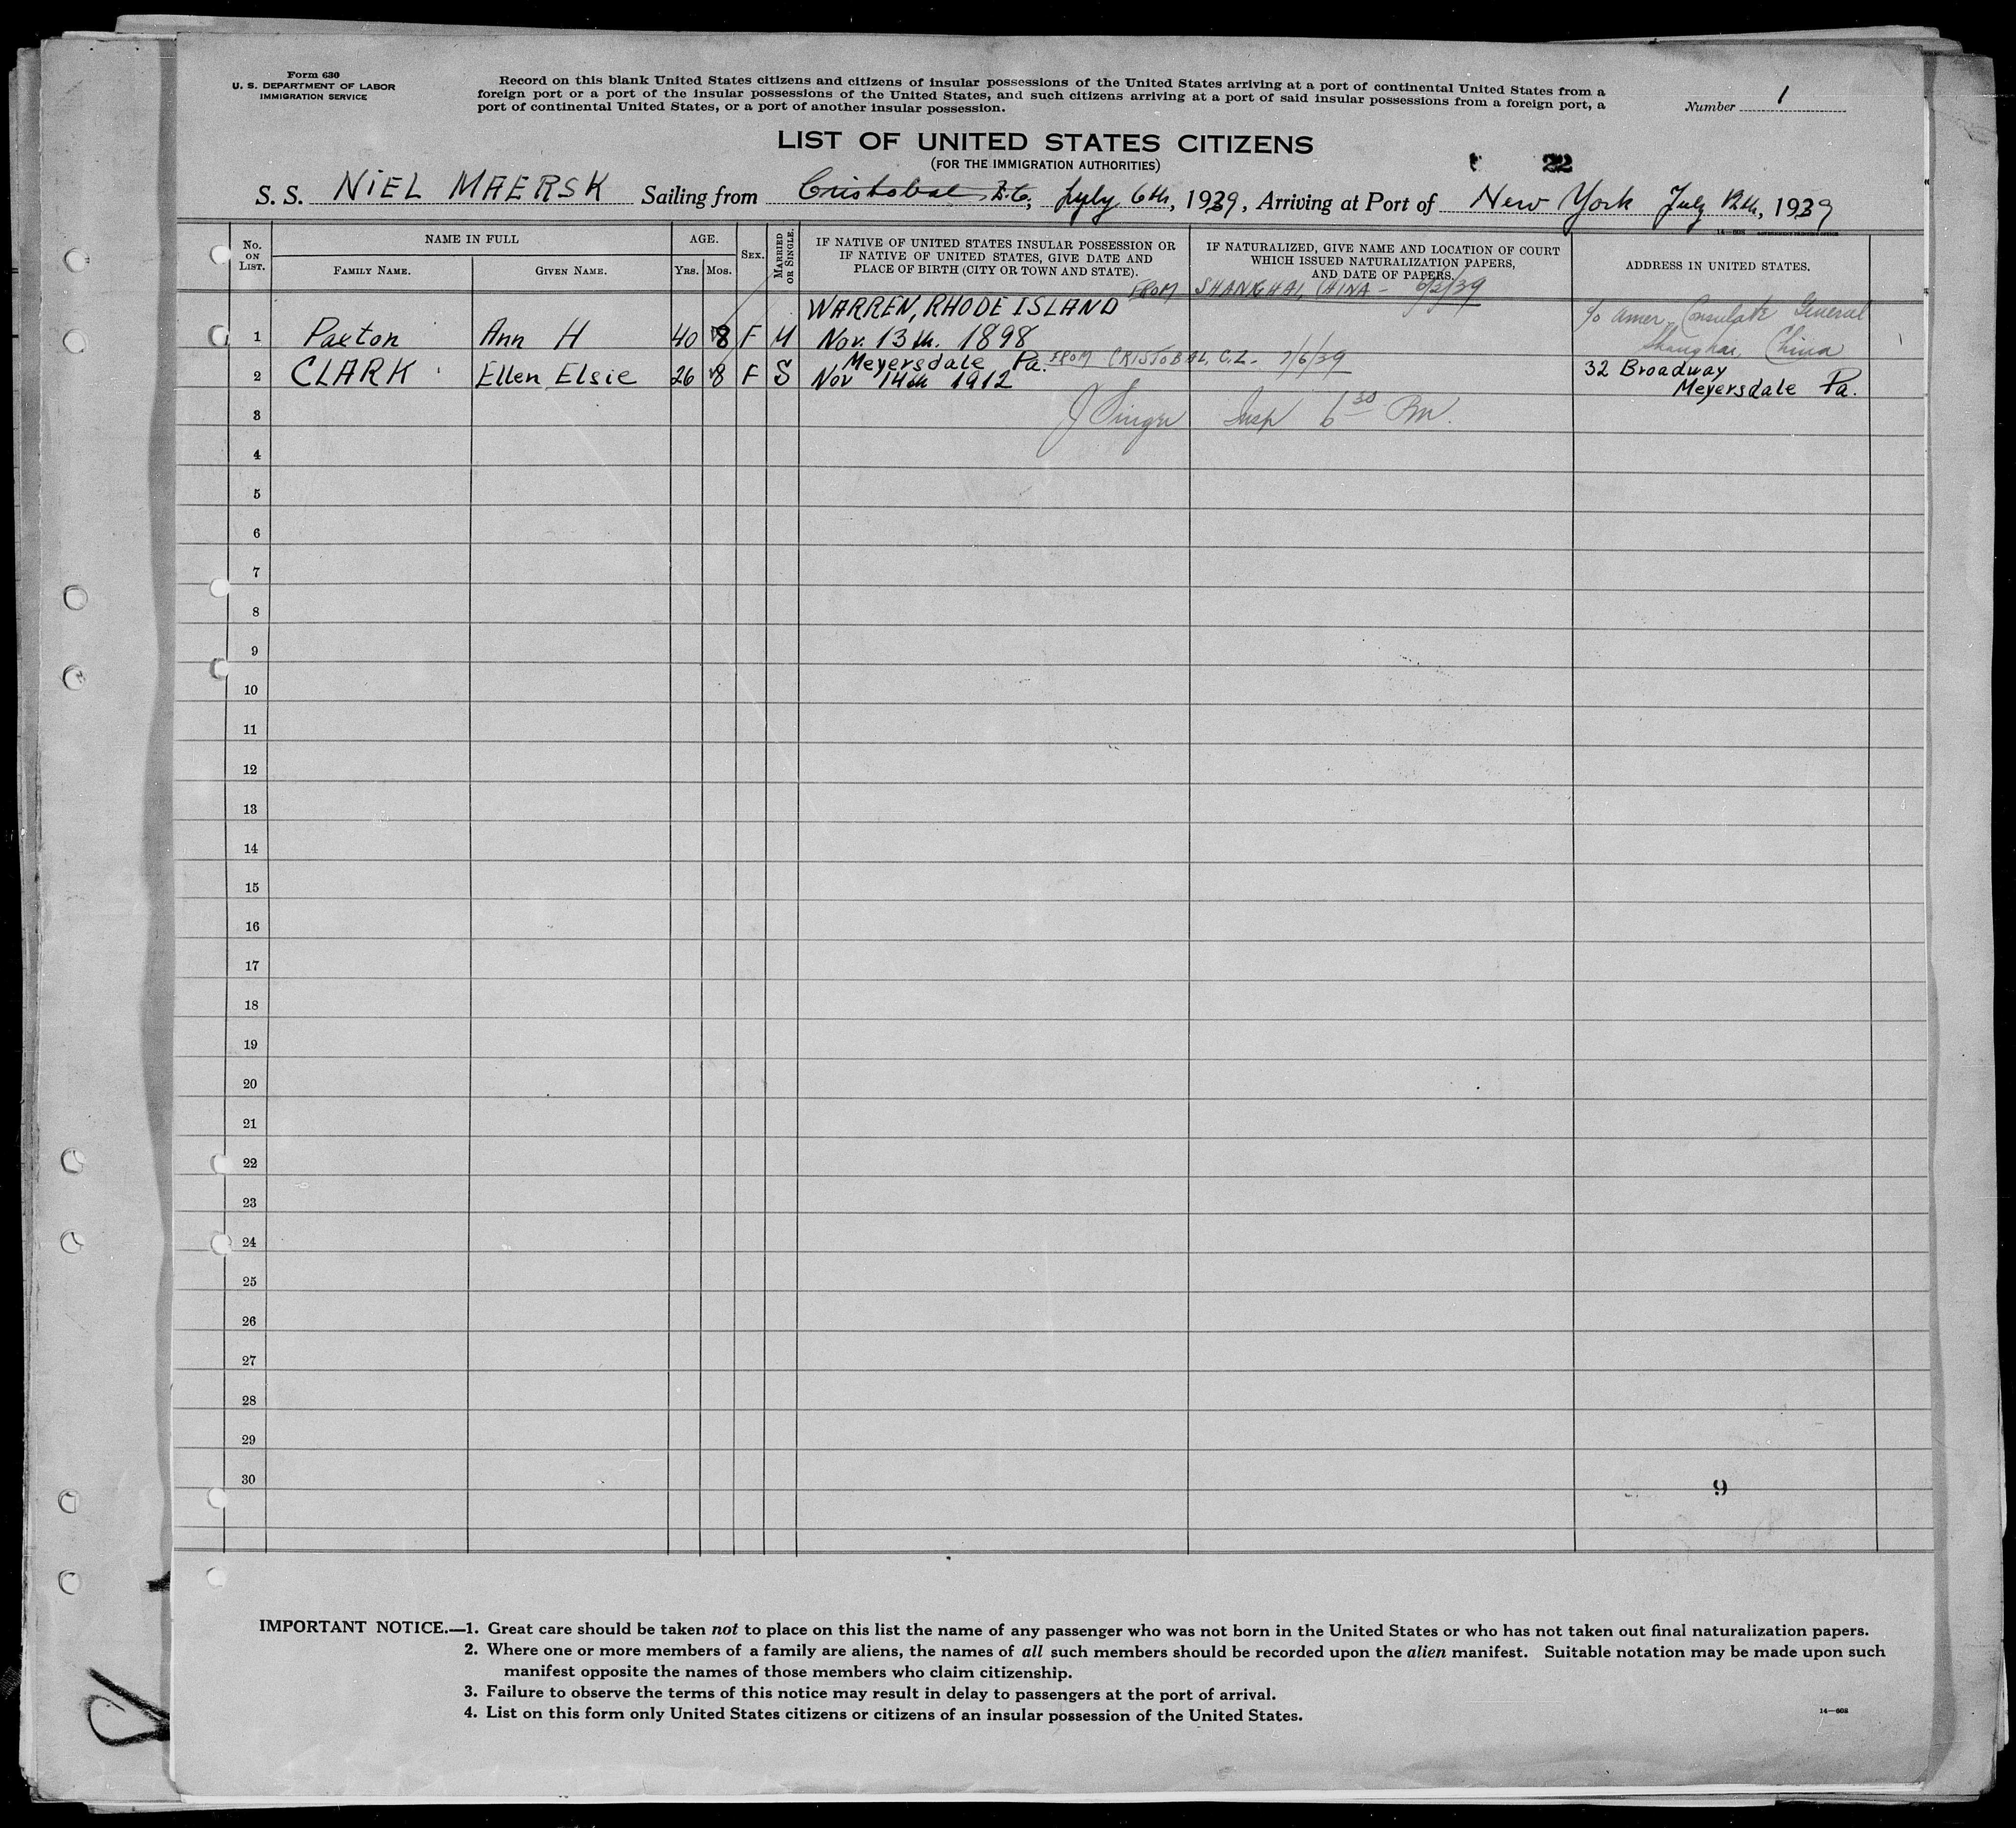 Form 630
U. S. DEPARTMENT OF LABOR
IMMIGRATION SERVICE
Record on this blank United States citizens and citizens of insular possessions of the United States arriving at a port of continental United States from a
foreign port or a port of the insular possessions of the United States, and such citizens arriving at a port of said insular possessions from a foreign port, a
port of continental United States, or a port of another insular possession.
Number 1
LIST OF UNITED STATES CITIZENS
(FOR THE IMMIGRATION AUTHORITIES)
22
S. S. NIEL MAERSK Sailing from Cristobal, July 6th, 1939, Arriving at Port of New York July 12th, 1939
14—608 GOVERNMENT PRINTING OFFICE
No. ON LIST. NAME IN FULL AGE. SEX. MARRIED OR SINGLE.
FAMILY NAME. GIVEN NAME. YRS. MOS.
IF NATIVE OF UNITED STATES INSULAR POSSESSION OR
IF NATIVE OF UNITED STATES, GIVE DATE AND
PLACE OF BIRTH (CITY OR TOWN AND STATE).
IF NATURALIZED, GIVE NAME AND LOCATION OF COURT
WHICH ISSUED NATURALIZATION PAPERS,
AND DATE OF PAPERS.
ADDRESS IN UNITED STATES.
FROM SHANGHAI, CHINA -
WARREN, RHODE ISLAND c/o Amer. Consulate General
1 Paxton Ann H 40 8 F M Nov. 13th. 1898 Shanghai, China
Meyersdale Pa. FROM CRISTOBAL, C.Z. - 7/6/39 32 Broadway
2 CLARK Ellen Elsie 26 8 F S Nov 14th 1912 Meyersdale Pa.
3 J Singer Insp 6 30 Pm.
4
5
6
7
8
9
10
11
12
13
14
15
16
17
18
19
20
21
22
23
24
25
26
27
28
29
30
9
IMPORTANT NOTICE.—1. Great care should be taken not to place on this list the name of any passenger who was not born in the United States or who has not taken out final naturalization papers.
2. Where one or more members of a family are aliens, the names of all such members should be recorded upon the alien manifest. Suitable notation may be made upon such
manifest opposite the names of those members who claim citizenship.
3. Failure to observe the terms of this notice may result in delay to passengers at the port of arrival.
4. List on this form only United States citizens or citizens of an insular possession of the United States.
14—608